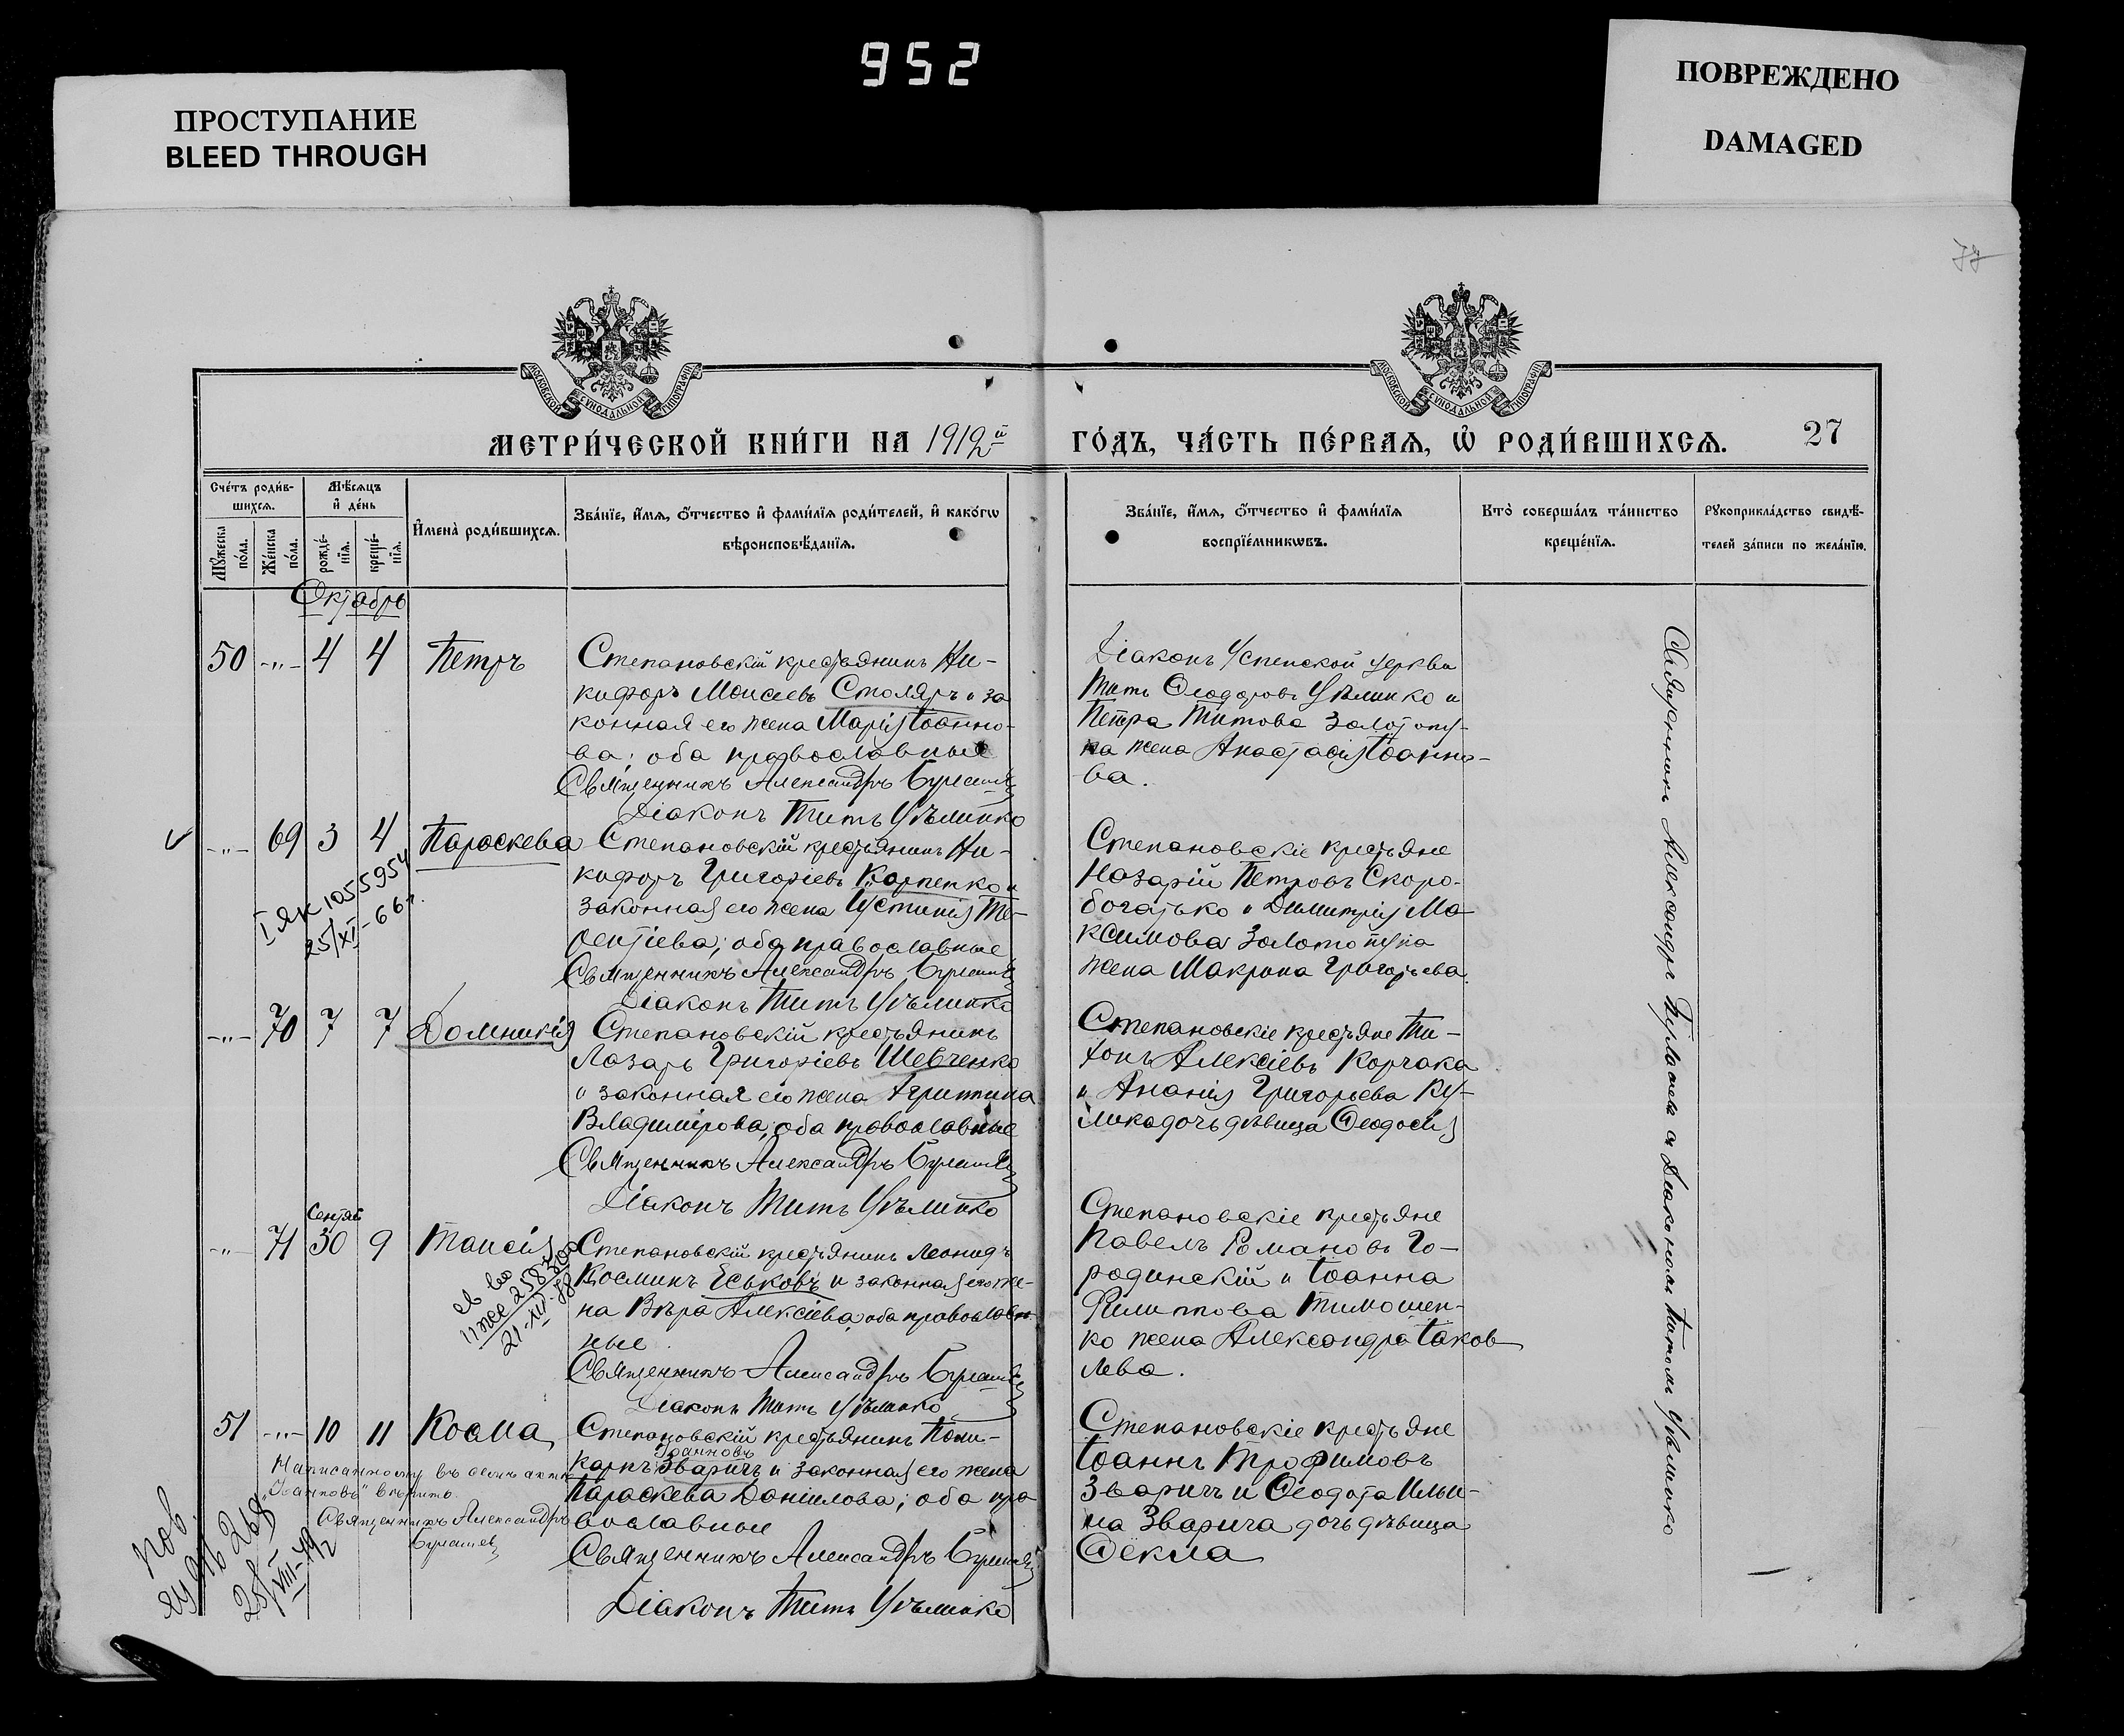 952
ПРОСТУПАНИЕ
BLEED THROUGH
ПОВРЕЖДЕНО
DAMAGED
МОСКОВСКОЙ СѴНОДАЛЬНОЙ ТИПОГРАФІИ
МОСКОВСКОЙ СѴНОДАЛЬНОЙ ТИПОГРАФІИ
МЕТРИ́ЧЕСКОЙ КНИ́ГИ НА 1912й
ГО́ДЪ, ЧА́СТЬ ПЕ́РВАѦ, Ѡ҆ РОДИ́ВШИХСѦ. 27
Сче́тъ роди́в-
шихсѧ.
Мꙋ́жеска
по́ла.
Же́нска
по́ла.
Мѣ́сѧцъ
и҆ де́нь
рожде́-
нїѧ.
креще́-
нїѧ.
И҆мена̀ роди́вшихсѧ.
Зва́нїе, и҆́мѧ, ѻ҆́тчество и҆ фами́лїѧ роди́телей, и҆ како́гѡ
вѣроисповѣ́данїѧ.
Зва́нїе, и҆́мѧ, ѻ҆́тчество и҆ фами́лїѧ
воспрїе́мникѡвъ.
Кто̀ соверша́лъ та́инство
креще́нїѧ.
Рꙋкоприкла́дство свидѣ́-
телей за́писи по жела́нїю.
Октябрь
50 -"- 4 4 Петръ
Степановскій крестьянинъ Ни-
кифоръ Моисеевъ Столяръ и за
конная его жена Марія Іоанно-
ва; оба православные
Священникъ Александръ
Діаконъ Титъ
Діаконъ Успенской церкви
Титъ Ѳеодоровъ и
Петра Титова Золотопу-
па жена Анастасія Іоанно-
ва.
-"- 69 3 4 Параскева
Степановскій крестьянинъ Ни-
кифоръ Григоріевъ Карпенко и
законная его жена Іустинія Те-
рентіева; оба православные
Священникъ Александръ
Діаконъ Титъ
I ЯК 1055954
25/XI-66г.
Степановскіе крестьяне
Назарій Петровъ Скоро-
богатько и Димитрія Ма-
ксимова Золотопупа
жена Макрина Григорьева.
-"- 70 7 7 Домникія
Степановскій крестьянинъ
Лазарь Григоріевъ Шевченко
и законная его жена Агриппина
Владимірова; оба православные
Священникъ Александръ
Діаконъ Титъ
Степановскіе крестьяне Ти-
хонъ Алексіевъ Корчака
и Ананія Григорьева Ку-
лика дочь дѣвица Ѳеодосія
-"- 71 Сентяб 30 9 Таисія
Степановскій крестьянинъ Леонидъ
Косминъ Еськовъ и законная его же-
на Вѣра Алексіева, оба православ-
ные.
Священникъ Александръ
Діаконъ Титъ
Степановскіе крестьяне
Павелъ Романовъ Го-
родинскій и Іоанна
Филиппова Тимошен-
ко жена Александра Іаков
лева.
51 -"- 10 11 Косма
Степановскій крестьянинъ Поли-
Іоанновъ
карпъ Зваричъ и законная его жена
Параскева Даніилова; оба пра
вославные
Священникъ Александръ
Діаконъ Титъ
Написанному въ семъ актѣ
"Іоанновъ" вѣрить.
Священникъ Александръ
Степановскіе крестьяне
Іоаннъ Трофимовъ
Зваричъ и Ѳеодота Ильи-
на Зварича дочь дѣвица
Ѳекла
Пов.
268
VIII-
Священникъ Александръ съ Діакономъ Титомъ